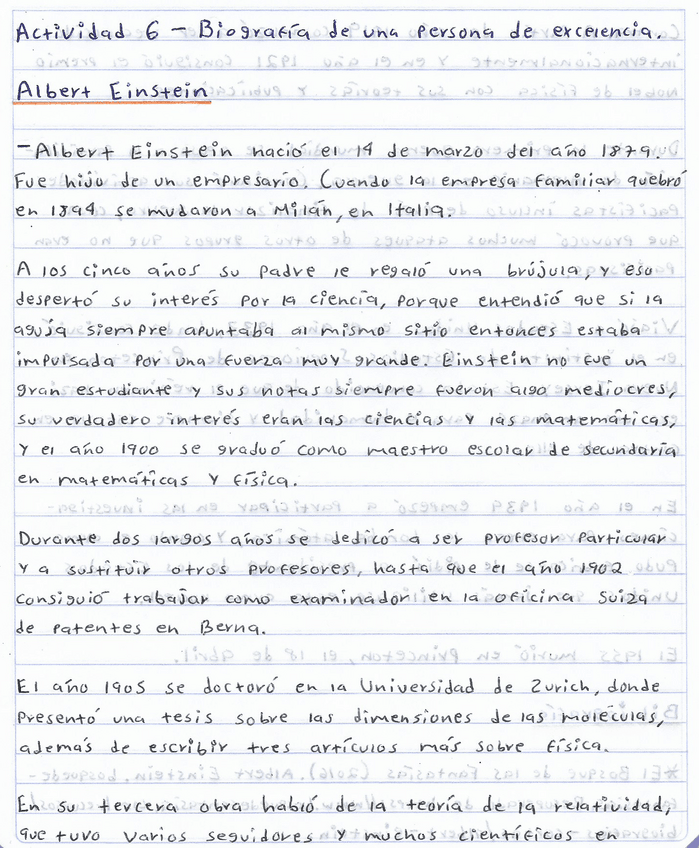 Actividad 6 - Biografía de una persona de excelencia.
Albert Einstein
- Albert Einstein nació el 14 de marzo del año 1879.
Fue hijo de un empresario. Cuando la empresa familiar quebró
en 1894 se mudaron a Milán, en Italia.
A los cinco años su padre le regaló una brújula, y eso
despertó su interés por la ciencia, porque entendió que si la
aguja siempre apuntaba al mismo sitio entonces estaba
impulsada por una fuerza muy grande. Einstein no fue un
gran estudiante y sus notas siempre fueron algo mediocres,
su verdadero interés eran las ciencias y las matemáticas,
y el año 1900 se graduó como maestro escolar de secundaria
en matemáticas y física.
Durante dos largos años se dedicó a ser profesor particular
y a sustituir otros profesores, hasta que el año 1902
consiguió trabajar como examinador en la oficina suiza
de patentes en Berna.
El año 1905 se doctoró en la Universidad de Zurich, donde
presentó una tesis sobre las dimensiones de las moléculas,
además de escribir tres artículos más sobre física.
En su tercera obra habló de la teoría de la relatividad,
que tuvo varios seguidores y muchos científicos en